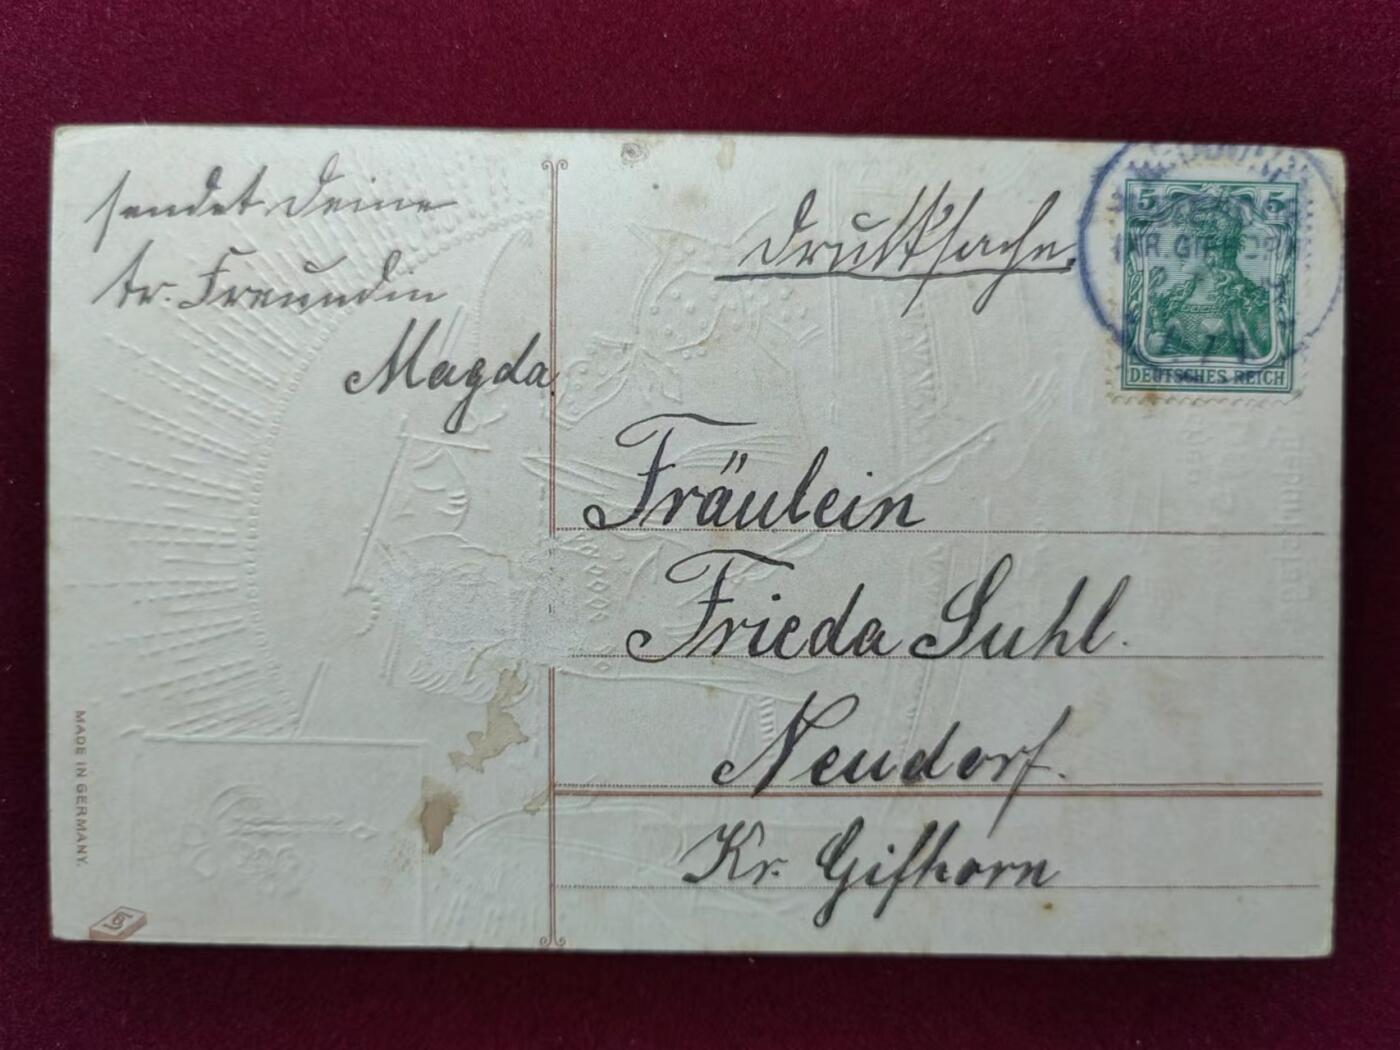 sendet Deine
tr. Freundin
Magda
Drucksache.
5 5
DEUTSCHES REICH
Fräulein
Frieda Suhl.
Neudorf.
Kr. Gifhorn
MADE IN GERMANY.